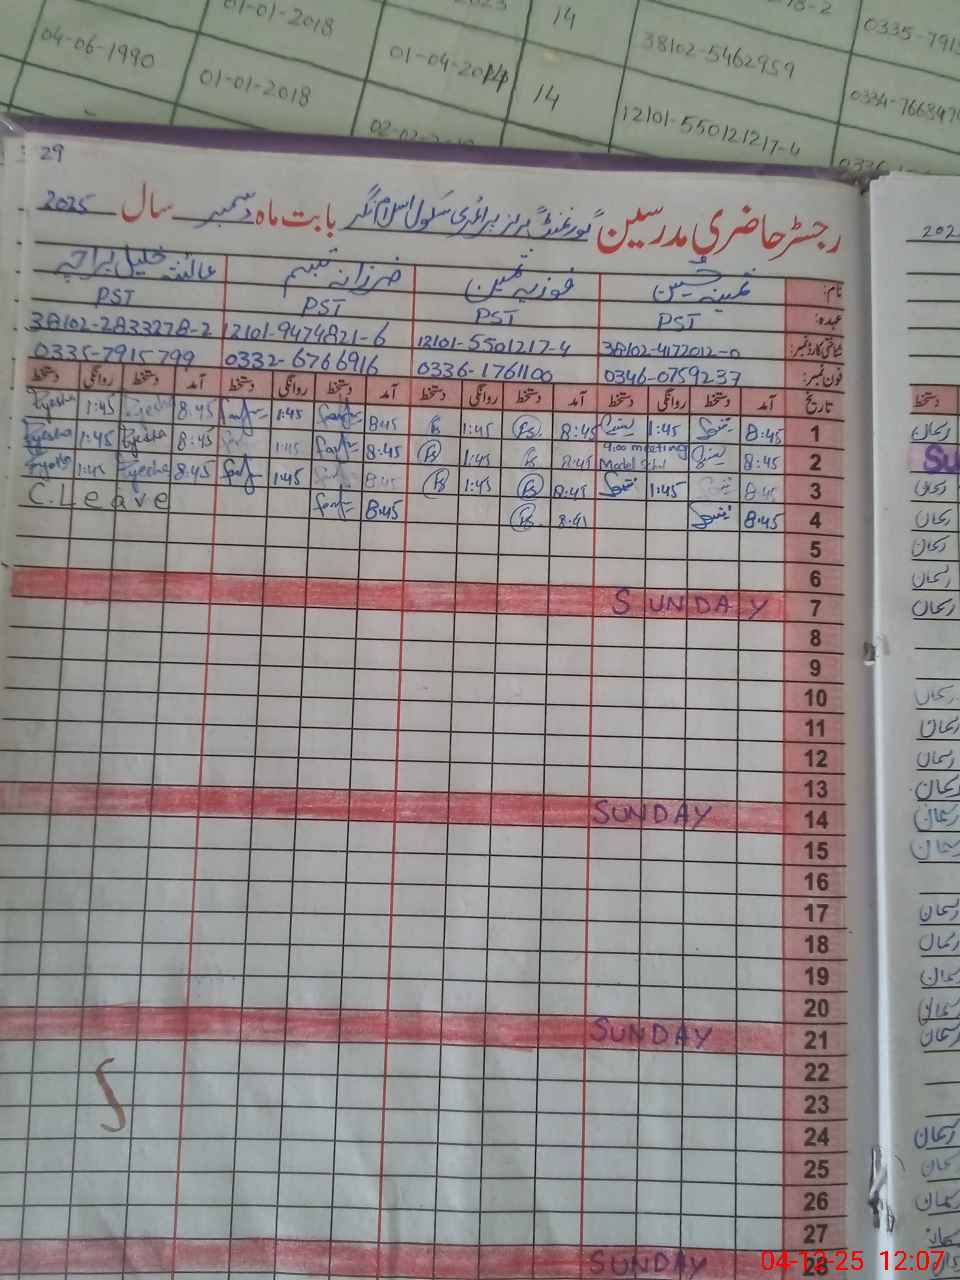 14
8-2
0335-791
01-01-2018
04-06-1990
01-04-2014
38102-5462959
01-01-2018
14
0334-766347
12101-550121217-4
02-02-2
0336
29
رجسٹر حاضری مدرسین گورنمنٹ گرلز پرائمری سکول اسلام نگر بابت ماہ دسمبر سال 2025
نام: ثمینہ حسین فوزیہ ثمین فرزانہ تبسم عائشہ خلیل پراچہ
عہدہ: PST PST PST PST
شناختی کارڈ نمبر: 38102-4172012-0 12101-5501217-4 12101-9474821-6 38102-2833278-2
فون نمبر: 0346-0759237 0336-1761100 0332-6766916 0335-7915799
تاریخ آمد دستخط روانگی دستخط آمد دستخط روانگی دستخط آمد دستخط روانگی دستخط آمد دستخط روانگی دستخط
1 8:45 1:45 8:45 1:45 8:45 1:45 8:45 Ayesha 1:45 Ayesha
2 8:45 9:00 meeting Model Schl 8:45 1:45 8:45 1:45 8:45 Ayesha 1:45 Ayesha
3 8:45 1:45 8:45 1:45 8:45 1:45 8:45 Ayesha 1:45 Ayesha
4 8:45 8:41 8:45 C.Leave
5
6
7 SUNDAY
8
9
10
11
12
13
14 SUNDAY
15
16
17
18
19
20
21 SUNDAY
22
23
24
25
26
27
28 SUNDAY
202
دستخط
ریحان
Su
ریحان
ریحان
ریحان
ریحان
ریحان
ریحان
ریحان
ریحان
ریحان
ریحان
ریحان
ریحان
ریحان
ریحان
ریحان
ریحان
ریحان
ریحان
ریحان
04-12-25 12:07